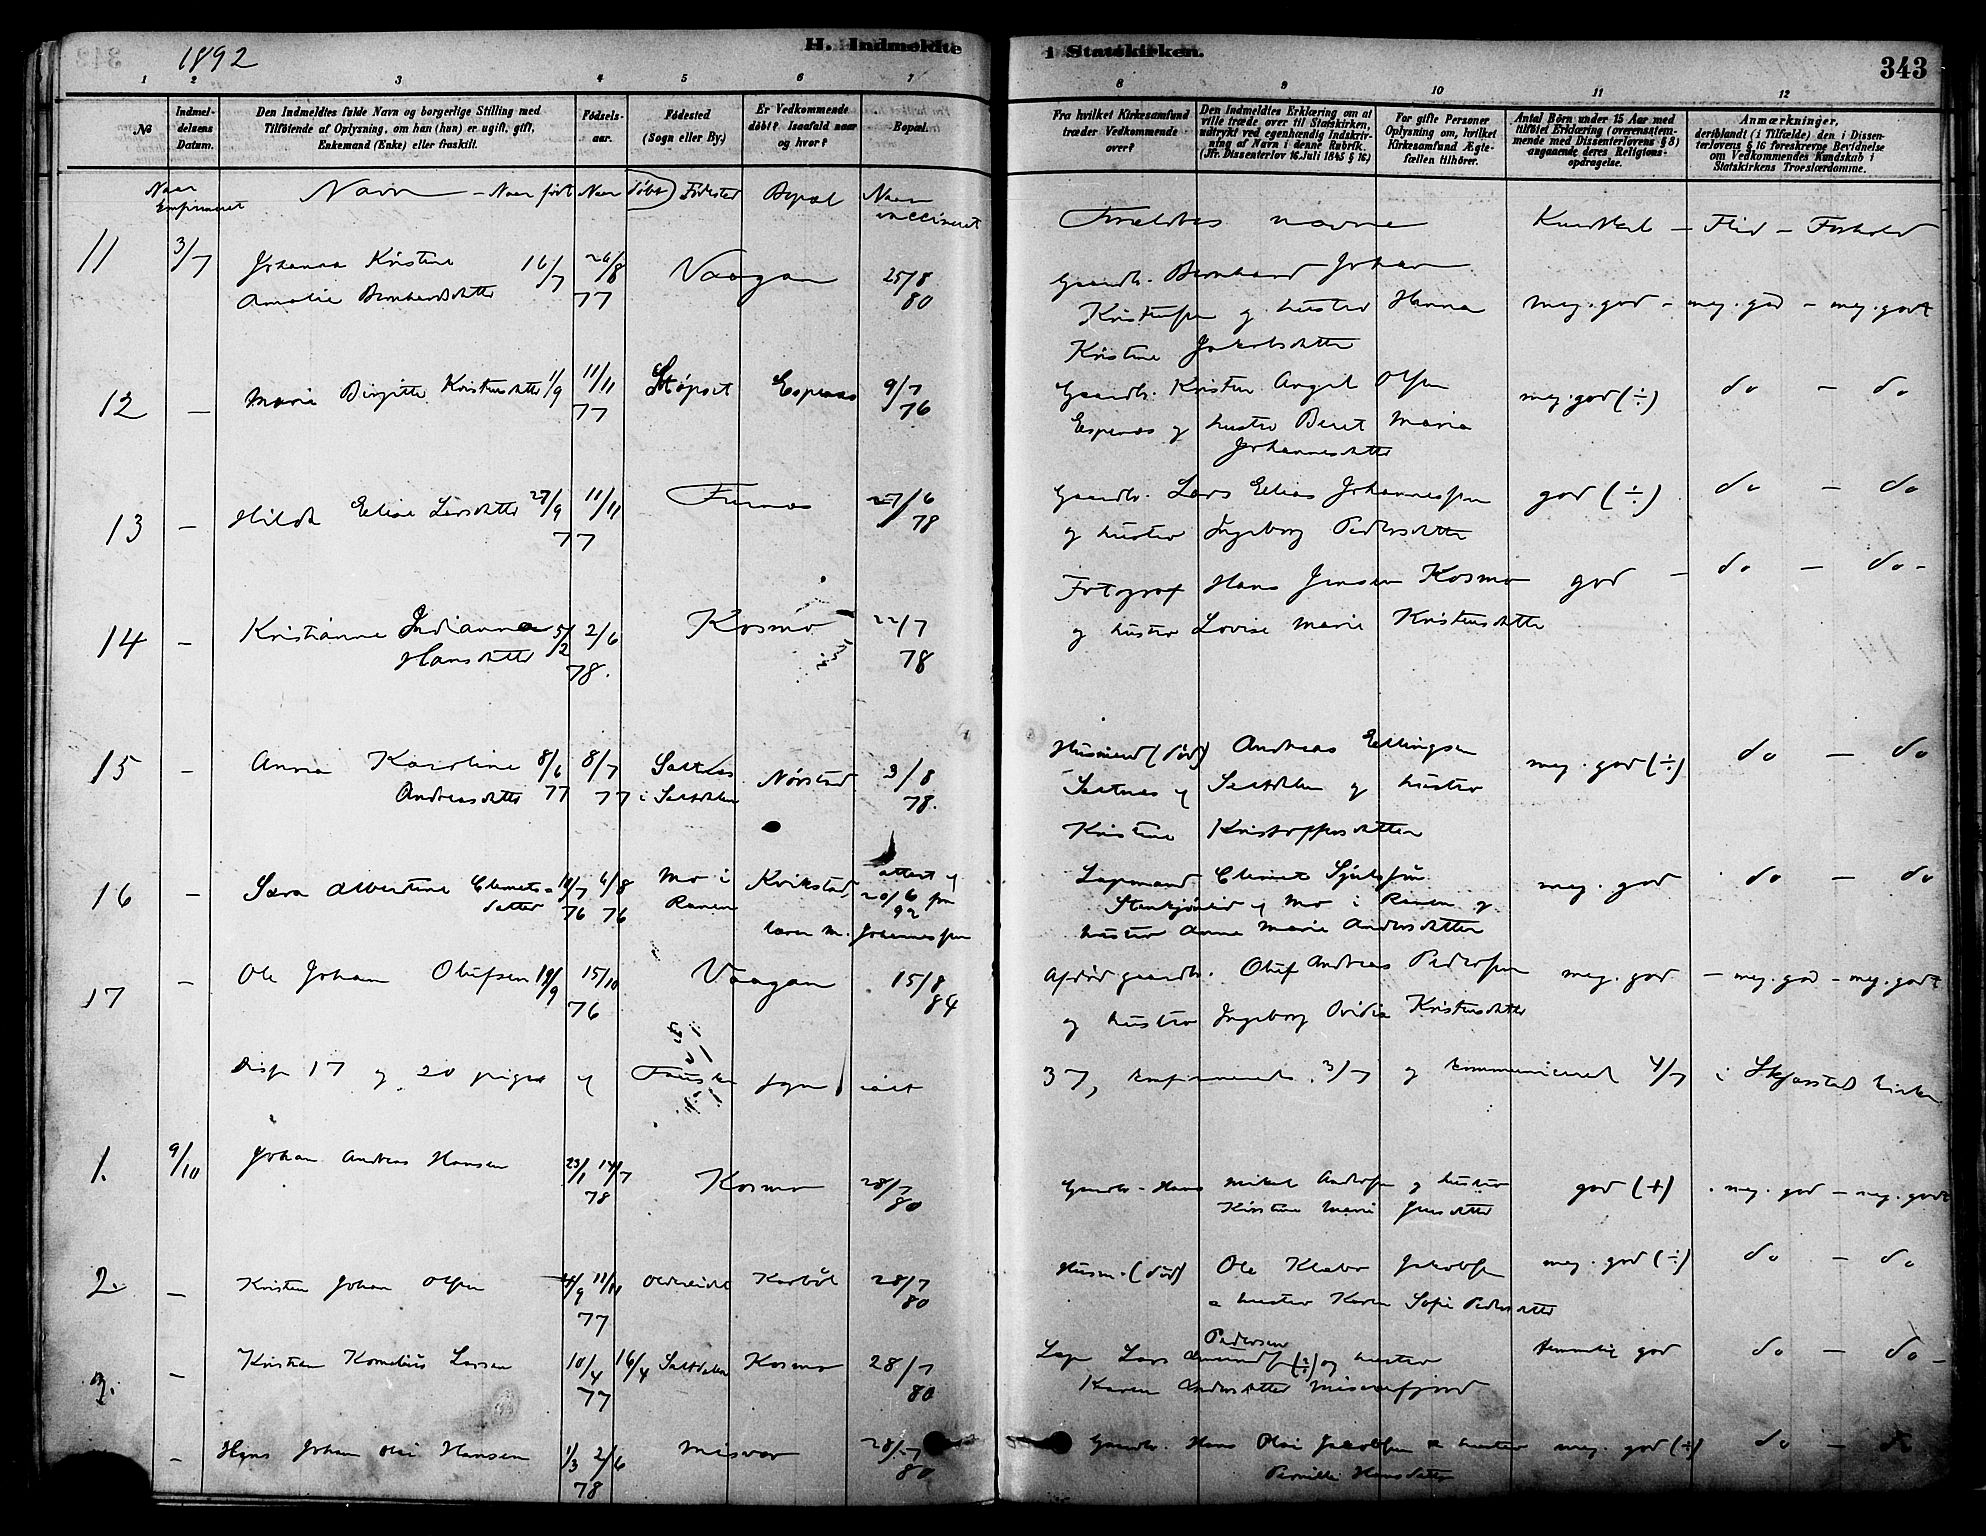 1892
H. Indmeldte
i Statskirken.
343
1 2 3 4 5 6 7
8 9 10 11 12
№
Indmel-
delsens
Datum.
Den Indmeldtes fulde Navn og borgerlige Stilling med
Tilföiende af Oplysning, om han (hun) er ugift, gift,
Enkemand (Enke) eller fraskilt.
Fødsels-
aar.
Fødested
(Sogn eller By.)
Er Vedkommende
döbt? Isaafald naar
og hvor?
Bopæl.
Fra hvilket Kirkesamfund
træder Vedkommende
over?
Den Indmeldtes Erklæring om at
ville træde over til Statskirken,
udtrykt ved egenhændig Indskriv-
ning af Navn i denne Rubrik.
(Jfr. Dissenterlov 16. Juli 1845 § 16.)
For gifte Personer
Oplysning om, hvilket
Kirkesamfund Ægte-
fællen tilhörer.
Antal Börn under 15 Aar med
tilföiet Erklæring (overensstem-
mende med Dissenterlovens § 8)
angaaende deres Religions-
opdragelse.
Anmærkninger,
deriblandt (i Tilfælde) den i Dissen-
terlovens § 16 foreskrevne Bevidnelse
om Vedkommendes Kundskab i
Statskirkens Troeslærdomme.
Naar
Confirmeret
Navn - Naar født Naar døbt Fødested Bopæl Naar
vaccineret
Forældres navne Kundskab - Flid - Forhold
11 3/7 Johanna Kristine 16/7 26/8 Vaagan 25/8
Amalie Bernhardsdatter 77 80
Gaardb. Bernhard Johan
Kristensen og hustru Hanna meg. god - meg. god - meg. godt
Kristine Jakobsdatter
12 - Marie Birgitte Kristensdatter 1/9 11/11 Støpset Espenæs 9/7
77 76
Gaardb. Kristen Angel Olsen meg. god (÷) do - do
Espenæs og hustru Beret Maria
Johannesdatter
13 - Hilda Elise Larsdatter 27/9 11/11 Furnes 27/6
77 78
Gaardb. Lars Elias Johannessen god (÷) do - do
og hustru Ingeborg Pedersdatter
14 - Kristianne Indianna 5/2 2/6 Kosmo 22/7
Hansdatter 78. 78
Fotograf Hans Jensen Kosmo god - do - do -
og hustru Lovise Marie Kristensdatter
15 - Anna Karoline 8/6 8/7 Saltnes Nørstad 3/8
Andreasdatter 77 77 i Saltdalen 78.
Husmand (død) Andreas Ellingsen meg. god (÷) do - do
Saltnes i Saltdalen og hustru
Kristine Kristoffersdatter
16 - Sara Albertine Clemets- 10/7 6/8 Mo i Kvikstad, attest af
datter 76 76 Ranen 20/6 fra
92
lærer M. Johannessen
Lapmand Clemet Sjulssøn meg. god do - do
af Mo i Ranen og
hustru Anne Marie Andersdatter
17 - Ole Johan Olufsen 19/9 15/10 Vaagan 15/8
76 84
Afdød gaardb. Oluf Andreas Pedersen meg. god - meg. god - meg. godt
og hustru Ingeborg Ovidia Kristensdatter
Disse 17 og 20 piger af Fauske sogn, ialt
37, konfirmeredes 3/7 og kommunicerede 4/7 i Skjærstad kirke
1. 9/10 Johan Andreas Hansen 23/1 14/7 Kosmo 28/7
78 80
Gaardb. Hans Mikal Andersen og hustru god (+) . meg. god - meg. godt
Kirstine Marie Jensdatter
2. - Kristen Johan Olsen 21/9 11/11 Oldereidet Karbøl 28/7
77 80
Husm. (død) Ole Klæbo Jakobsen meg. god (÷) do - do
& hustru Karen Sofie Pedersdatter
3. - Kristian Kornelius Larsen 10/4 16/4 Saltdalen Kosmo 28/7
77 80
Lap Lars Pedersen (÷) og hustru temmelig god do - do -
Karen Andersdatter Misværfjord
- Hans Johan Olai Hansen 1/3 2/6 Misvær 28/7
78 80
Gaardb. Hans Olai Jakobsen & hustru meg. god (÷) do - do
Pernille Hansdatter